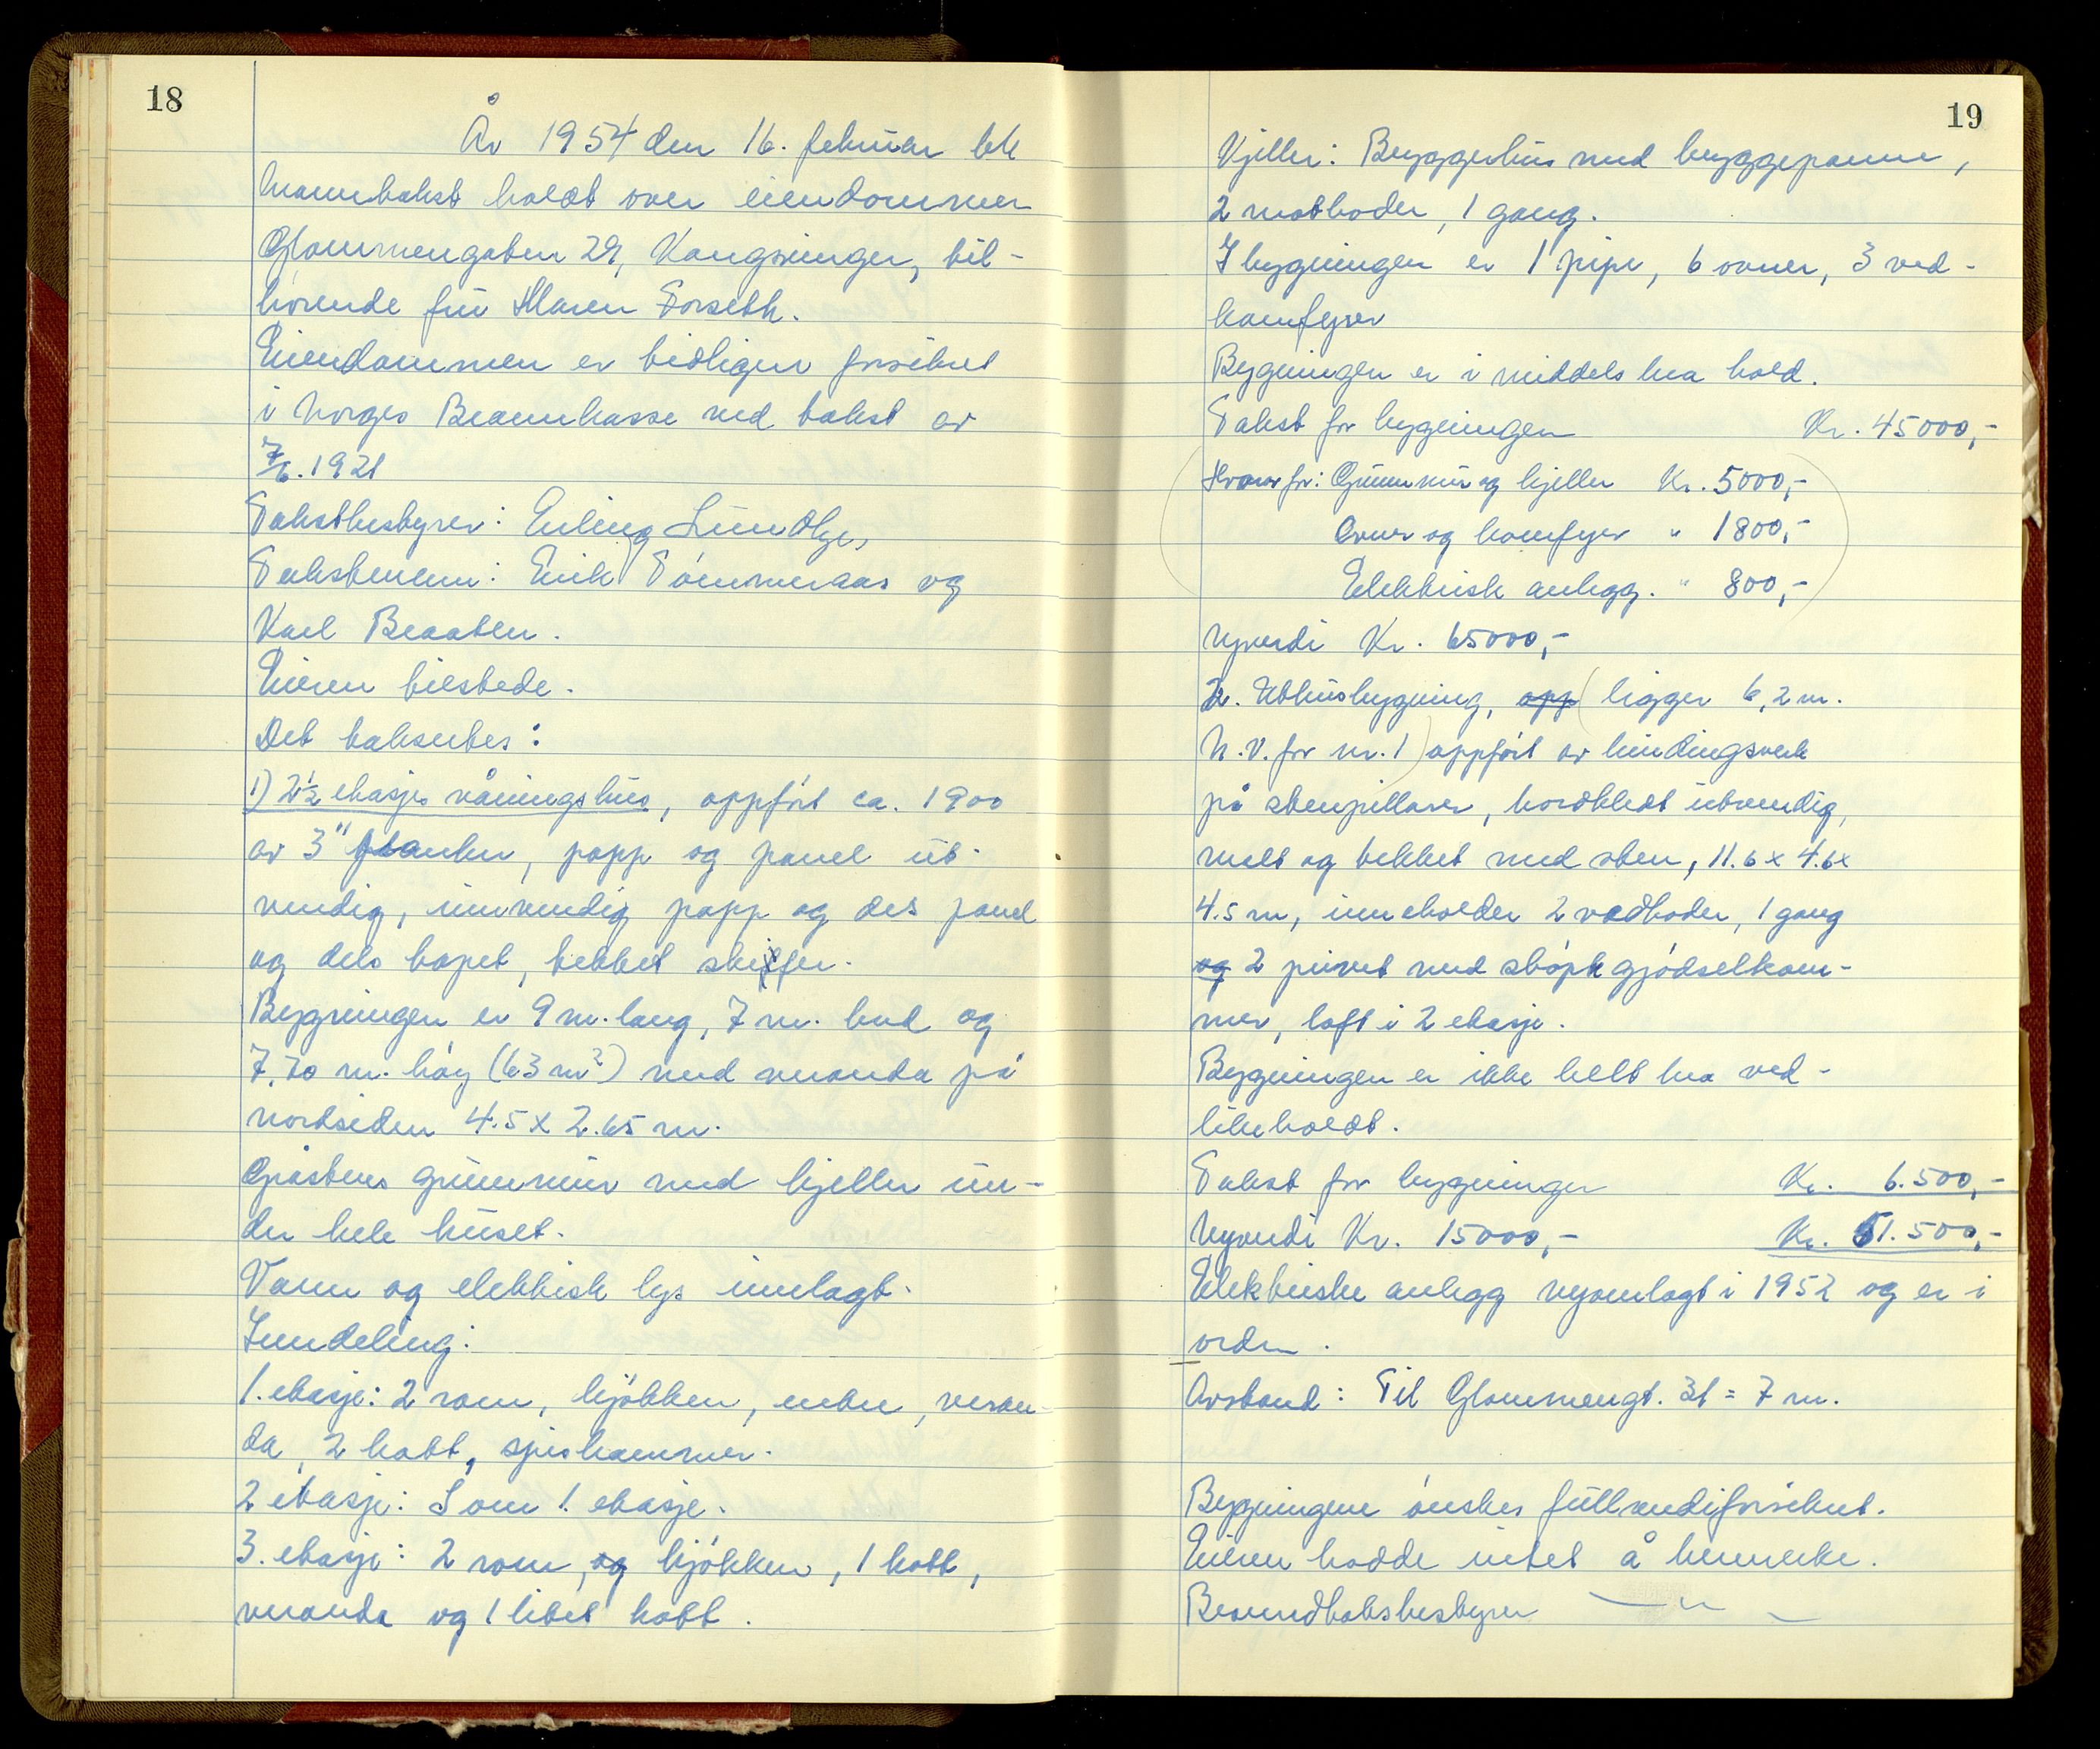 18
År 1954 den 16. februar ble
branntakst holdt over eiendommen
Glommengaten 29, Kongsvinger, til-
hørende fru Maren Forseth.
Eiendommen er tidligere forsikret
i Norges Brannkasse ved takst av
7/6. 1921
Takstbestyrer: Erling
Takstmenn: Erik Tømmeraas og
Karl Braaten.
Eieren tilstede.
Det takseres:
1) 2½ etasjes våningshus, oppført ca. 1900
av 3" planker, papp og panel ut-
vendig, innvendig papp og dels panel
og dels tapet, tekket skiffer.
Bygningen er 9 m. lang, 7 m. bred og
7,70 m. høy (63 m²) med veranda på
nordsiden 4.5 x 2.65 m.
Gråstens grunnmur med kjeller un-
der hele huset.
Vann og elektrisk lys innlagt.
Inndeling:
1. etasje: 2 rom, kjøkken, entre, veran-
da, 2 kott, spiskammer.
2 etasje: Som 1. etasje.
3. etasje: 2 rom, og kjøkken, 1 kott,
veranda og 1 litet kott.
19
Kjeller: Bryggerhus med bryggepanne,
2 matboder, 1 gang.
I bygningen er 1 pipe, 6 ovner, 3 ved-
komfyrer
Bygningen er i middels bra hold.
Takst for bygningen Kr. 45000,-
Hvorav for: Grunnmur og kjeller Kr. 5000,-
Ovner og komfyrer " 1800,-
Elektrisk anlegg. " 800,-
Nyverdi Kr. 65000,-
2. Uthusbygning, opp (ligger 6,2 m.
N.V. for nr. 1) oppført av bindingsverk
på stenpillarer, bordkledt utvendig,
malt og tekket med sten, 11.6 x 4.6 x
4.5 m, inneholder 2 vedboder, 1 gang
og 2 privet med støpt gjødselkam-
mer, loft i 2 etasje.
Bygningen er ikke helt bra ved-
likeholdt.
Takst for bygningen Kr. 6.500,-
Nyverdi Kr. 15000,- Kr. 51.500,-
Elektriske anlegg nyomlagt i 1952 og er i
orden.
Avstand: Til Glommengt. 31 = 7 m.
Bygningene ønskes fullverdiforsikret.
Eieren hadde intet å bemerke.
Branntakstbestyrer — " —